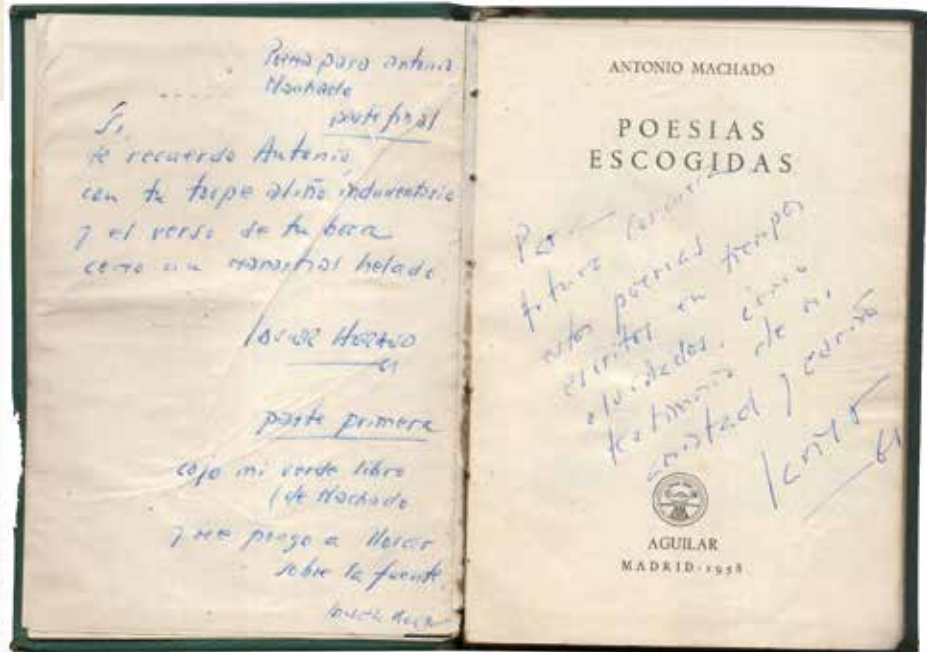 Poema para Antonio
Machado
parte final
Si,
te recuerdo Antonio,
con tu torpe aliño indumentario
y el verso de tu boca
como un manantial helado.
61
parte primera
cojo mi verde libro
(de Machado
y me pongo a llorar
sobre la fuente
ANTONIO MACHADO
POESIAS
ESCOGIDAS
Para
estas poesias
escritas en tiempos
olvidados, como
testimonio de mi
amistad y cariño
61
AGUILAR
MADRID-1958